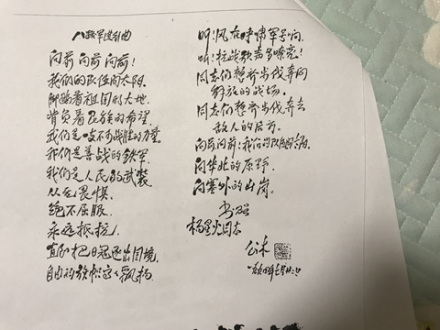 八路军进行曲
向前 向前 向前!
我们的队伍向太阳.
脚踏着祖国的大地.
背负着民族的希望.
我们是一支不可战胜的力量
我们是善战的铁军
我们是人民的武装
从无畏惧.
绝不屈服.
永远抵抗.
直到把日寇逐出国境.
自由的旗帜高高飘扬
听!风在呼啸军号响.
听!抗战歌声多嘹亮!
同志们整齐步伐奔向
解放的战场.
同志们整齐步伐奔去
敌人的后方.
向前向前!我们的队伍向太阳.
向华北的原野.
向塞外的山岗.
书昭
杨星火同志
公木